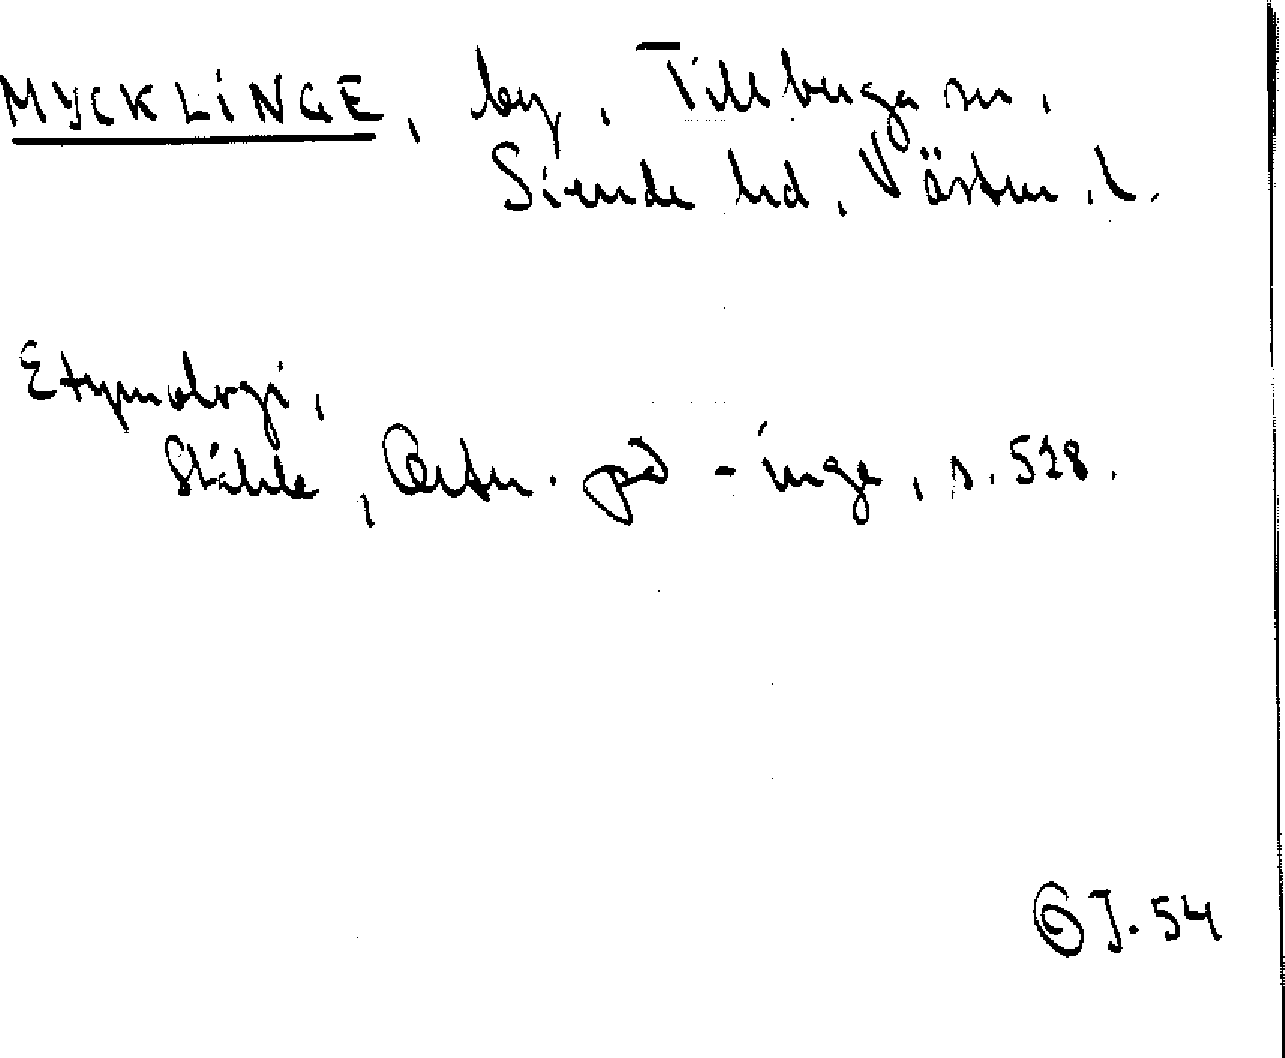 MYCKLINGE, by, Tillberga sn,
Siende hd, Västm. l.
Etymologi,
Ståhle, Ortn. på -inge, s. 528.
GJ. 54